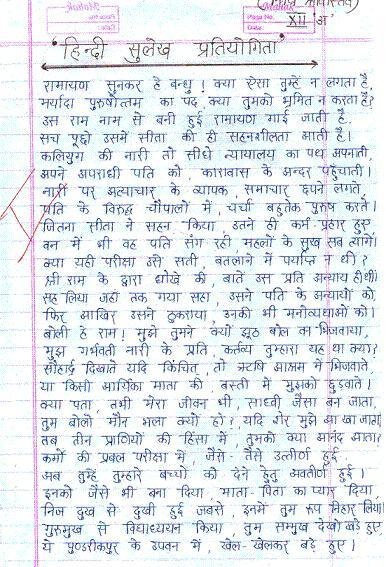 XII 'अ'
"हिन्दी सुलेख प्रतियोगिता"
रामायण सुनकर हे बन्धु! क्या ऐसा तुम्हें न लगता है,
मर्यादा पुरुषोत्तम का पद, क्या तुमको भ्रमित न करता है?
उस राम नाम से बनी हुई रामायण गाई जाती है,
सच पूछो उसमें सीता की ही सहनशीलता आती है।
कलियुग की नारी तो सीधे न्यायालय का पथ अपनाती,
अपने अपराधी पति को, कारावास के अन्दर पहुँचाती।
नारी पर अत्याचार के व्यापक, समाचार छपने लगते,
पति के विरुद्ध चौपालों में, चर्चा बहुतेक पुरुष करते।
जितना सीता ने सहन किया, उतने ही कर्म-प्रहार हुए
वन में भी वह पति संग रही महलों के सुख सब त्यागे।
क्या यही परीक्षा उसे सती, बतलाने में पर्याप्त न थी?
श्री राम के द्वारा धोखे की, बातें उस प्रति अन्याय ही थी।
सह लिया जहाँ तक गया सहा, उसने पति के अन्यायों को,
फिर आखिर उसने ठुकराया, उनकी भी मनोव्यथाओं को।
बोली हे राम! मुझे तुमने क्यों झूठ बोल वन भिजवाया,
मुझ गर्भवती नारी के प्रति, कर्तव्य तुम्हारा यह था क्या?
सौहार्द दिखाते यदि किंचित, तो ऋषि आश्रम में भिजवाते,
या किसी आर्यिका माता की, बस्ती में मुझको छुड़वाते।
क्या पता, तभी मेरा जीवन भी, साध्वी जैसा बन जाता,
तुम बोलो मौन भला क्यों हो? यदि शेर मुझे खा जाता,
तब तीन प्राणियों की हिंसा में, तुमको क्या आनंद आता?
कर्मों की प्रबल परीक्षा में, जैसे-तैसे उत्तीर्ण हुई,
अब तुम्हें तुम्हारे बच्चों को देने हेतु अवतीर्ण हुई।
इनको जैसे भी बना दिया, माता-पिता का प्यार दिया
निज दुख से दुखी हुई जबसे, इनमें तुम रूप निहार लिया।
गुरुमुख से विद्याध्ययन किया, तुम सम्मुख देखो खड़े हुए,
ये पुण्डरीकपुर के उपवन में, खेल-खेलकर बड़े हुए।